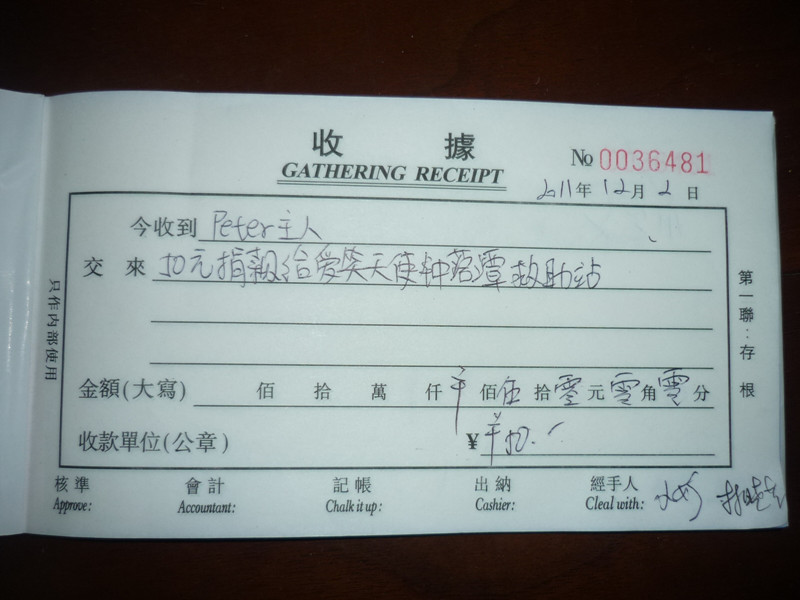 收 據
GATHERING RECEIPT
No 0036481
2011年12月2日
今收到 Peter主人
交來 50元捐款给爱笑天使钟落潭救助站
金額(大寫) 佰 拾 萬 仟 佰 伍 拾 零 元 零 角 零 分
收款單位(公章) ¥ 50.
核準 會計 記帳 出納 經手人
Approve: Accountant: Chalk it up: Cashier: Cleal with:
只作内部使用
第一聯:存根